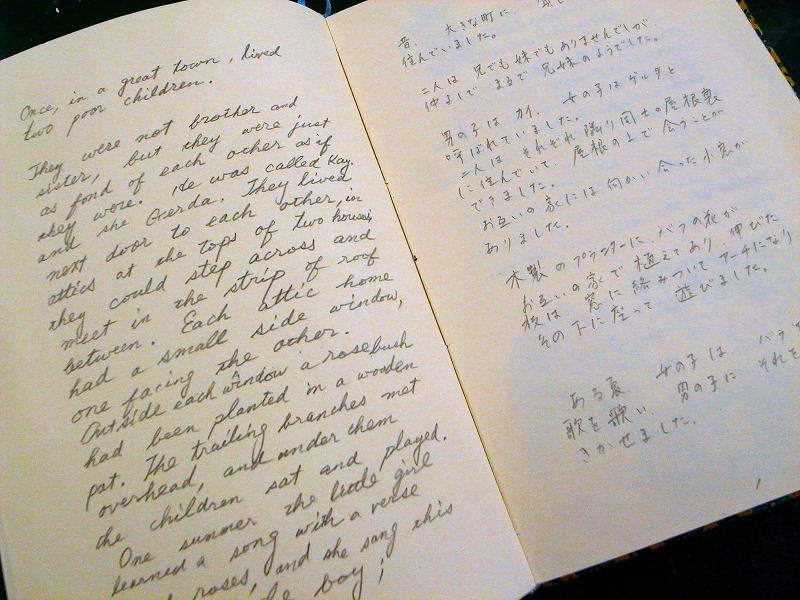 Once, in a great town, lived
two poor children.
They were not brother and
sister, but they were just
as fond of each other as if
they were. He was called Kay.
and she Gerda. They lived
next door to each other, in
attics at the tops of two houses,
they could step across and
meet in the strip of roof
between. Each attic home
had a small side window,
one facing the other.
Outside each window a rosebush
had been planted in a wooden
pot. The trailing branches met
overhead, and under them
the children sat and played.
One summer the little girl
learned a song with a verse
roses, and she sang this
boy;
昔、大きな町に、
住んでいました。
二人は兄でも妹でもありませんでしたが、
仲よしで まるで 兄妹のようでした。
男の子は カイ、女の子は ゲルダと
呼ばれていました。
二人は それぞれ 隣り同士の屋根裏
に住んでいて、屋根の上で 会うことが
できました。
お互いの家には 向かい合った 小窓が
ありました。
木製のプランターに、バラの花が
お互いの家で 植えてあり、伸びた
枝は 窓に 絡みついて アーチになり
その下に座って 遊びました。
ある夏 女の子は バラ
歌を歌い、男の子に それを
きかせました。